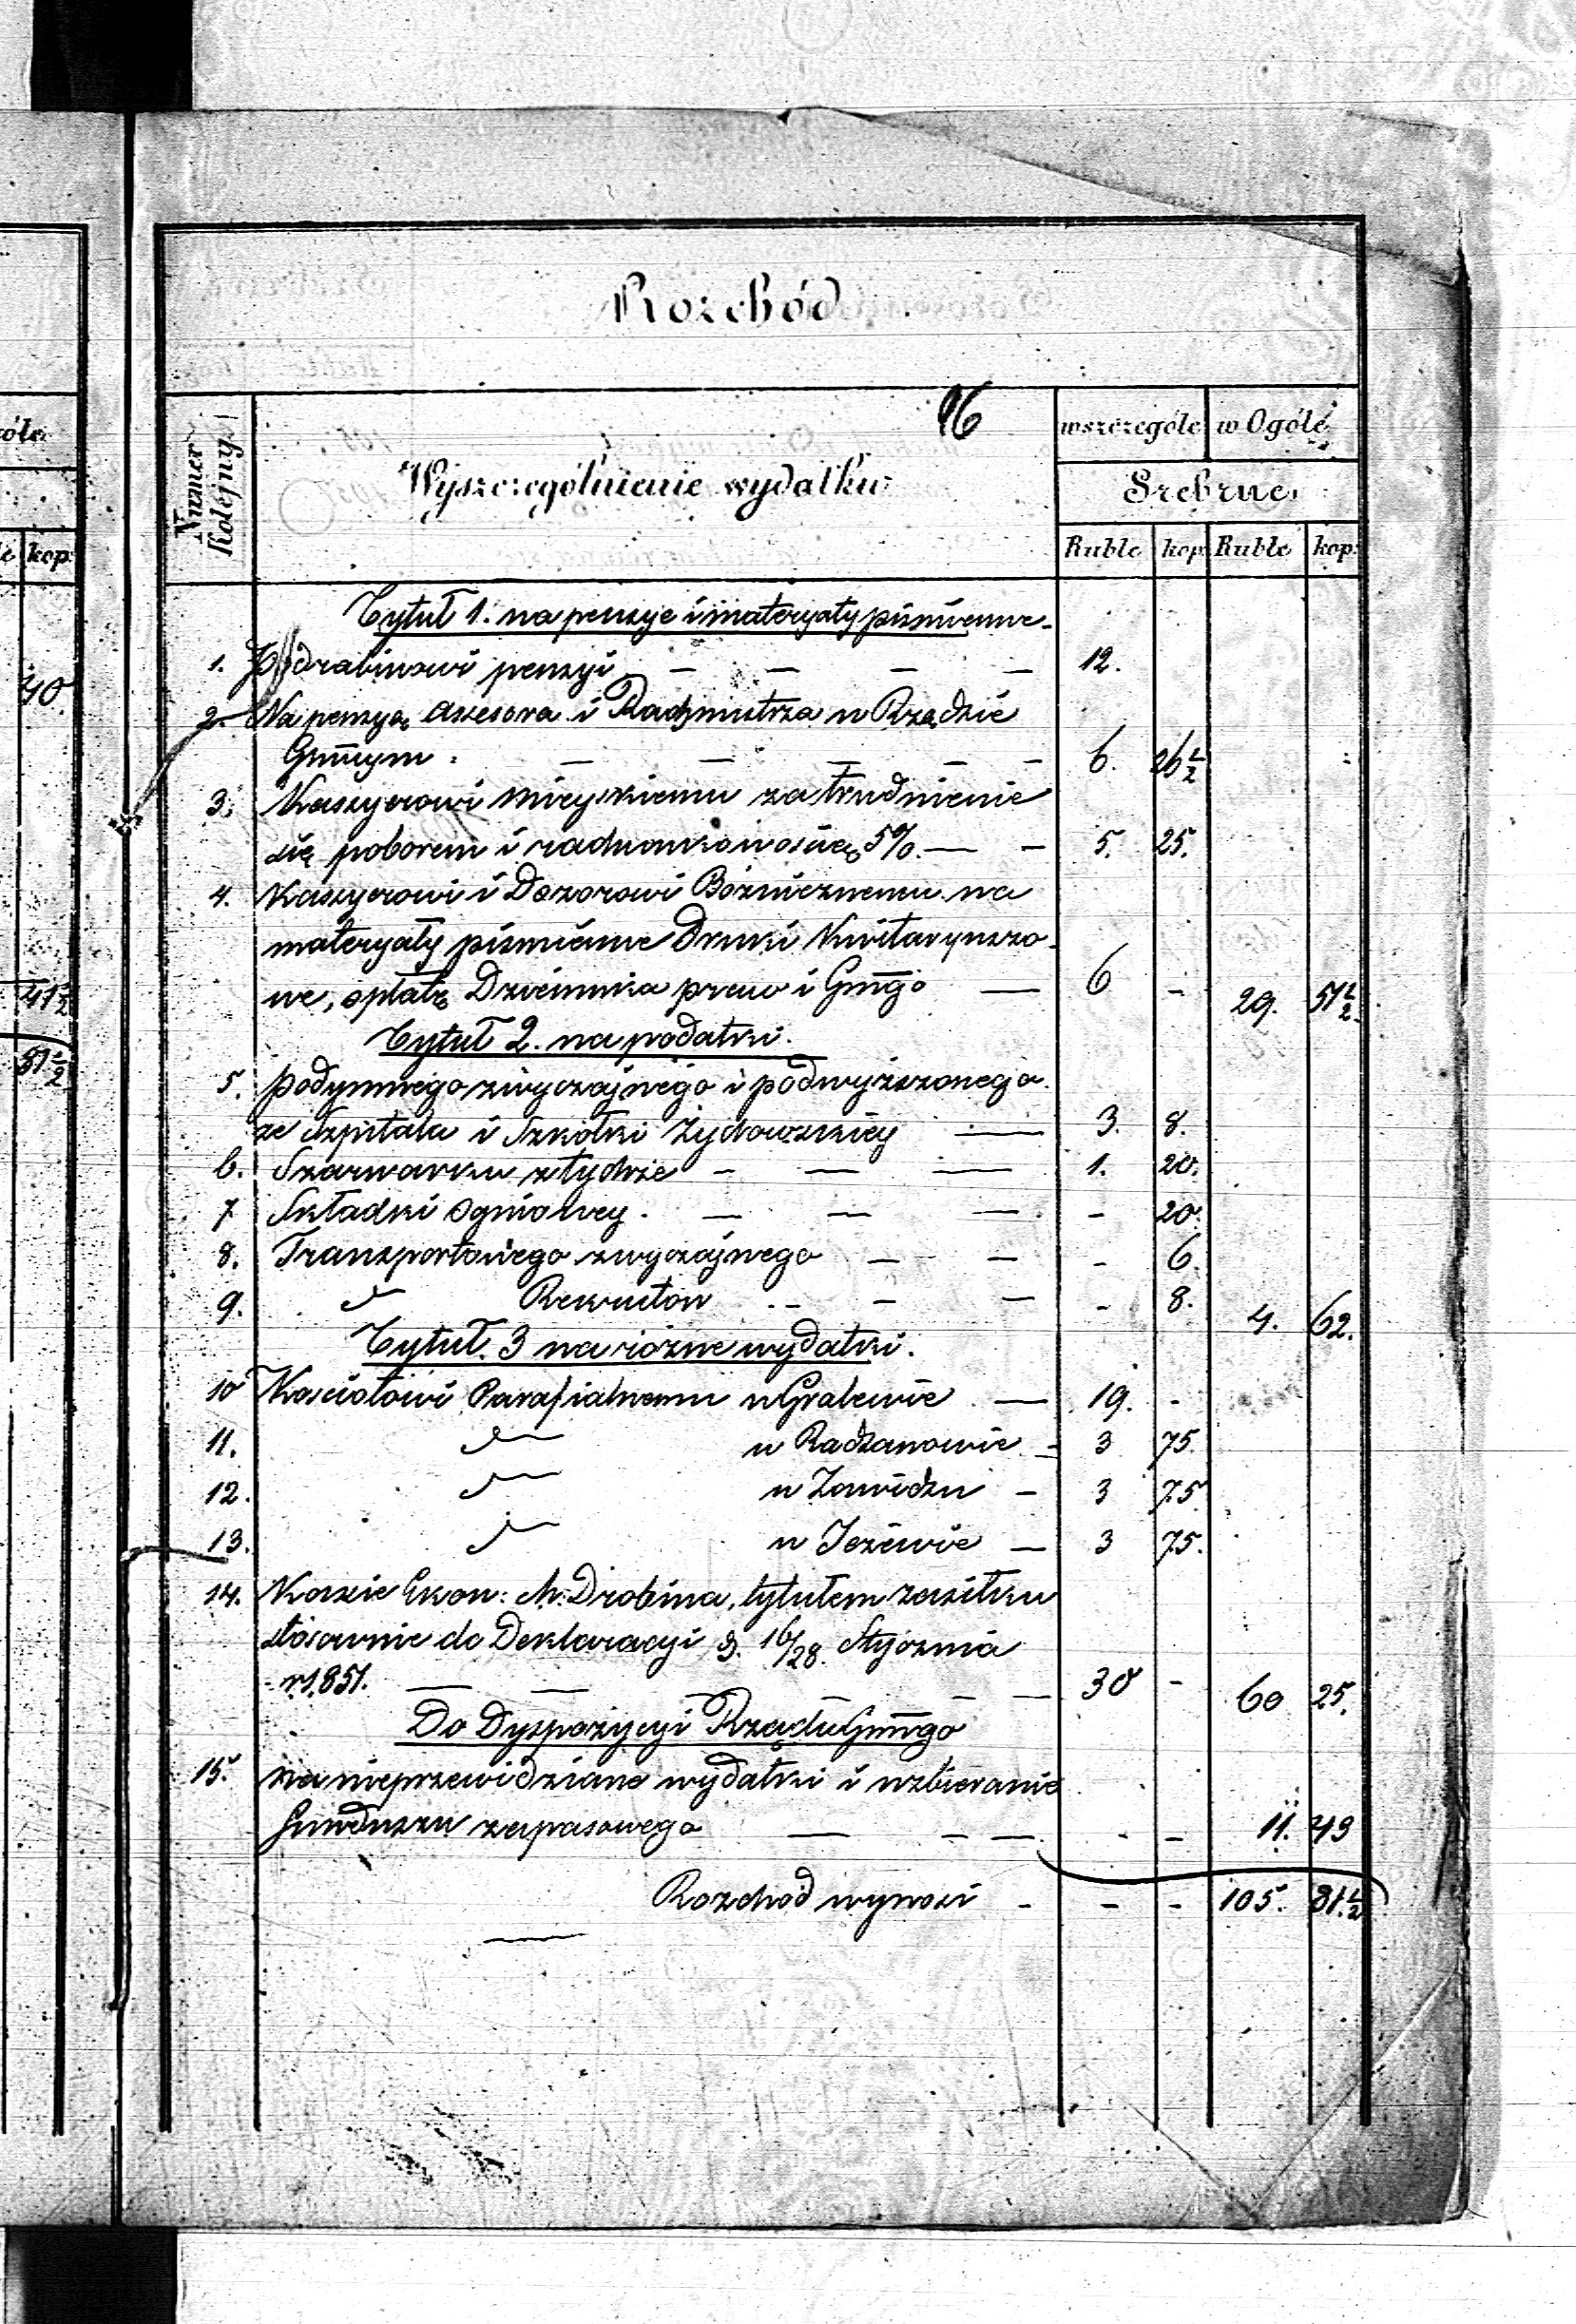 óle
kop:
40.
41 1/2
51 1/2
Rozchód
96
Numer Kolejny
Wyszczególnienie wydatku
wszczególe
w Ogóle
Srebrne
Ruble
kop:
Ruble
kop:
Tytuł 1. na pensye i materyały piśmienne
1. Podrabinowi pensyi — — — — 12.
2. Na pensyą Assesora i Rachmistrza w Rządzie
Gmnym. — — — — — 6. 26 1/2
3. Kassyerowi mieyskiemu za trudnienie
się poborem i rachunkowością 5%. — — 5. 25.
4. Kassyerowi i Dozorowi Bożnicznemu na
materyały piśmienne druki Kwitaryuszo-
we, opłatę Dziennika praw i Gmgo — 6 - 29. 51 1/2
Tytuł 2. na podatki.
5. podymnego zwyczajnego i podwyższonego
ze Szpitala i Szkółki Żydowskiey — 3. 8.
6. Szarwarku z tychże — — — 1. 20.
7 Składki Ogniowey. — — — - 20.
8. Transportowego zwyczajnego — — - 6.
9. " Rekrutów - — — - 8. 4. 62.
Tytuł. 3 na różne wydatki.
10 Kościołowi Parafialnemu w Gralewie — 19. -
11. " w Radzanowie - 3 75.
12. " w Zawidzu - 3 75
13. " w Jeżewie — 3 75.
14. Kassie Ekon: M. Drobina, tytułem zasiłku
stosownie do Deklaracyi d. 16/28. Stycznia
r 1.851. — — — — — — 30 - 60 25.
Do Dyspozycyi Rządu Gmngo
15. na nieprzewidziane wydatki i uzbieranie
funduszu zapasowego — — — - - 11. 43
Rozchód wynosi - - - 105. 81 1/2